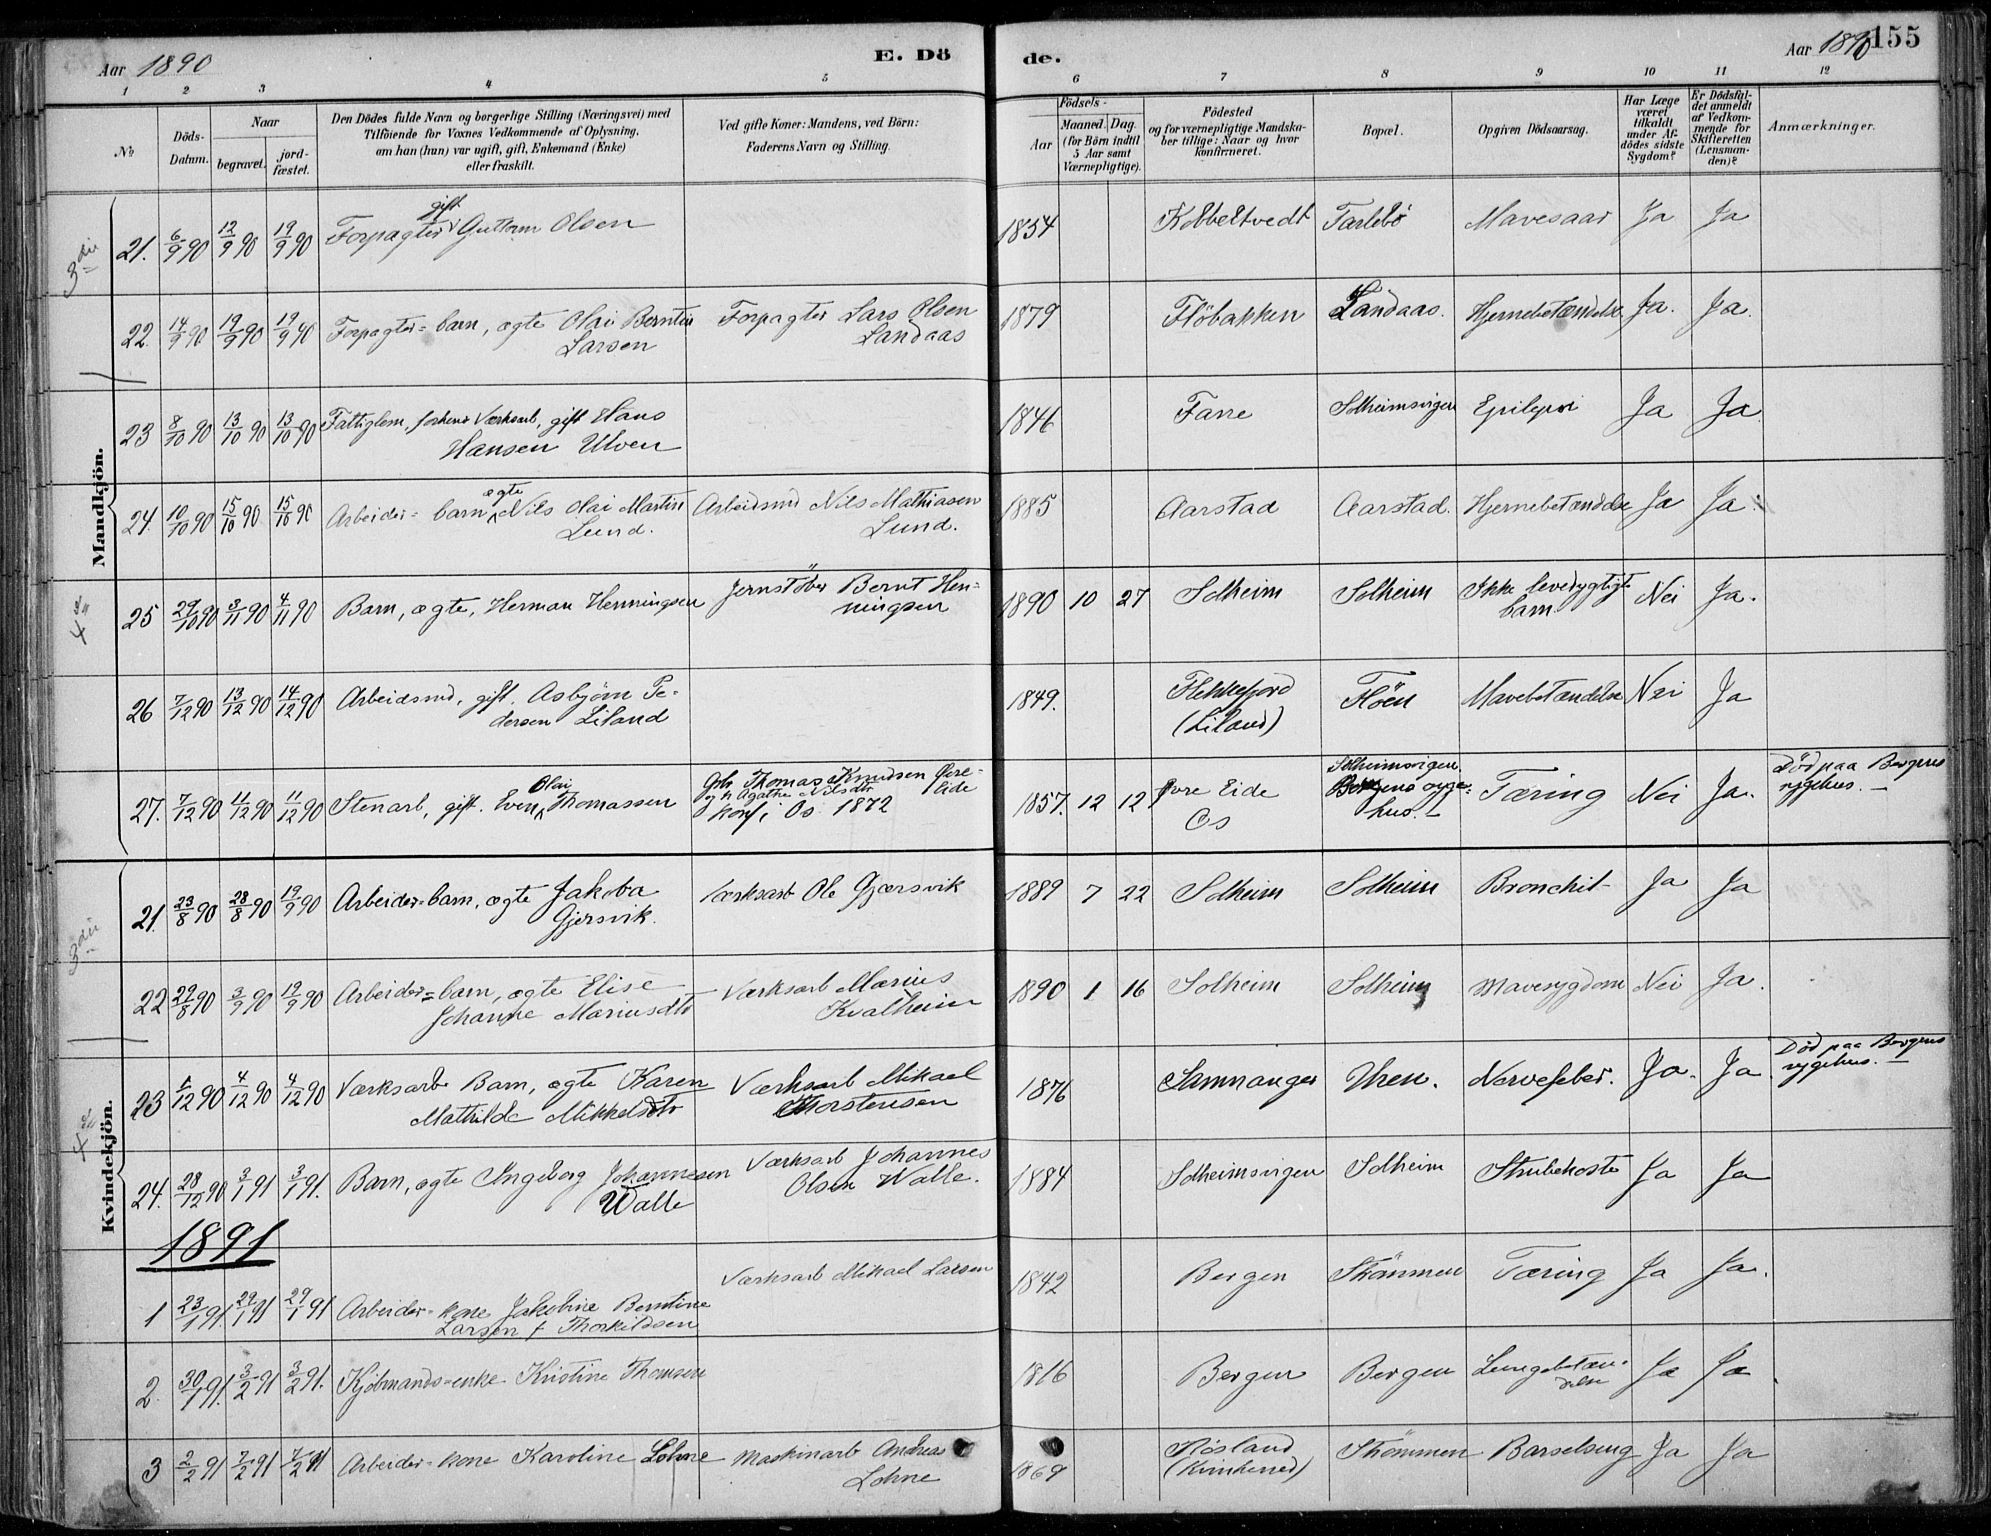 Aar 1890
E. Dö
de.
Aar 1890
155
1 2 3 4 5 6 7 8 9 10 11 12
No
Döds-Datum.
Naar
begravet.
jord-fæstet.
Den Dödes fulde Navn og borgerlige Stilling (Næringsvei) med
Tilföiende for Voxnes Vedkommende af Oplysning,
om han (hun) var ugift, gift, Enkemand (Enke)
eller fraskilt.
Ved gifte Koner: Mandens, ved Börn:
Faderens Navn og Stilling.
Födsels-
Aar
Maaned.
Dag.
(for Börn indtil
5 Aar samt
Værnepligtige).
Födested
og for værnepligtige Mandska-
ber tillige: Naar og hvor
konfirmeret.
Bopæl.
Opgiven Dödsaarsag.
Har Læge
været
tilkaldt
under Af-
dödes sidste
Sygdom?
Er Dödsfal-
det anmeldt
af Vedkom-
mende for
Skifteretten
(Lensman-
den)?
Anmærkninger.
Mandkjön.
21. 6/9 90 12/9 90 19/9 90 Forpagter gift Guttorm Olsen 1834 Kobbeltvedt Tarlebö Mavesaar Ja Ja
22. 14/9 90 19/9 90 19/9 90 Forpagter=barn, ægte Olai Berntin Forpagter Lars Olsen 1879 Flöbakken Landaas. Hjernebetændelse Ja. Ja.
Larsen Landaas
23 8/10 90 13/10 90 13/10 90 Fattiglem, forhenv Værksarb, gift Hans 1846 Fane Solheimsvigen Epilepsi Ja Ja
Hansen Ulven
24. 10/10 90 15/10 90 15/10 90 Arbeider=barn ægte Nils Olai Martin Arbeidsmd Nils Mathiasen 1885 Aarstad Aarstad. Hjernebetændelse Ja Ja.
Lund. Lund.
25 29/10 90 3/11 90 4/11 90 Barn, ægte, Herman Henningsen Jernstöber Bernt Hen= 1890 10 27 Solheim Solheim Ikke levedygtigt Nei Ja.
ningsen barn
26 7/12 90 13/12 90 14/12 90 Arbeidsmd, gift. Asbjörn Pe- 1849. Flekkefjord Flöen Mavebetændelse Nei Ja
dersen Liland (Liland)
27. 7/12 90 11/12 90 11/12 90 Stenarb, gift. Even Olai Thomassen Gbr. Thomas Knudsen Öre- 1857. 12 12 Öre Eide Solheimsvigen. Tæring Nei Ja. Död paa Bergens
og h. Agathe Nilsdtr Eide Os Bergens syge= sygehus.—
Konf i Os 1872 hus.—
Kvindekjön.
21. 23/8 90 28/8 90 19/9 90 Arbeider=barn, ægte Jakoba Værksarb Ole Gjærsvik 1889 7 22 Solheim Solheim Bronchit Ja Ja
Gjersvik.
22 29/8 90 3/9 90 19/9 90 Arbeider=barn, ægte Elise Værksarb Marius 1890 1 16 Solheim Solheim Mavesygdom Nei Ja.
Johanne Mariusdtr Kvalheim
23 1/12 90 4/12 90 4/12 90 Værksarb Barn, ægte Karen Værksarb Mikael 1876 Samnanger Uren. Nervefeber. Ja. Ja Död paa Bergens
Mathilde Mikkelsdtr Thorstensen sygehus.—
24. 28/12 90 3/1 91 3/1 91. Barn, ægte Ingeborg Johannesen Værksarb Johannes 1884 Solheimsvigen Solheim Strubehoste Ja Ja
Walle Olsen Walle.
1891
1 23/1 91. 29/1 91 29/1 91 Arbeider=kone Jakobine Berntine Værksarb Mikael Larsen 1842 Bergen Strömmen Tæring Ja Ja.
Larsen f Thorkildsen
2. 30/1 91. 3/2 91 3/2 91. Kjöbmands=enke Kristine Thomsen 1816 Bergen Bergen Lungebetæn- Ja Ja
delse
3 2/2 91 7/2 91 7/2 91 Arbeider=kone Karoline Lohne Maskinarb Andreas 1869 Strömmen Barselseng Ja Ja
Lohne
3die
4de
3die
4de